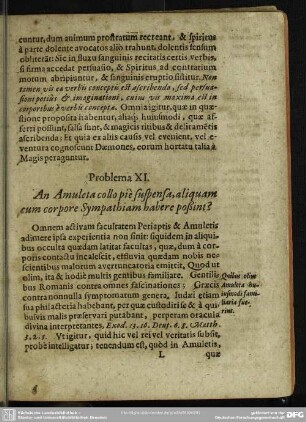 cuntur, dum animum prostratum recreant, & spiritus
à parte dolente avocatos aliò trahunt, dolentis sensum
obliterāt: Sic in fluxu sanguinis recitatis certis verbis,
si firma accedat persuasio, & Spiritus ad contrarium
motum abripiuntur, & sanguinis eruptio sistitur. Non
tamen vis ea verbis conceptis est ascribenda, sed persua-
sioni potius & imaginationi, cuius vis maxima est in
corporibus è verbis conceptis. Omnia igitur, quæ in quæ-
stione proposita habentur, aliaq; huiusmodi, quæ af-
ferri possunt, falsa sunt, & magicis ritibus & deliramētis
ascribenda: Et quia ex aliis causis vel evenient, vel e-
ventura cognoscunt Dæmones, eorum hortatu talia à
Magis peraguntur.
Problema XI.
An Amuleta collo piè suspensa, aliquam
cum corpore Sympathiam habere possint?
Omnem activam facultatem Periaptis & Amuletis
adimere ipsa experientia non sinit: siquidem in aliqui-
bus occulta quædam latitat facultas, quæ, dum à cor-
poris contactu incalescit, effluvia quædam nobis ne-
scientibus malorum averruncatoria emittit, Quod ut
olim, ita & hodiè multis gentibus familiare. Gentilis
bus Romanis contra omnes fascinationes: Græcis
contra nonnulla symptomatum genera, Judæi etiam
sua philacteria habebant, per quæ custodiri se & à qui-
busvis malis præservari putabant, perperam oracula
divina interpretantes, Exod. 13. 16. Deut. 6. 8. Matth.
3. 2. 5. Vtigitur, quid hic vel rei vel veritatis subsit,
probè intelligatur; tenendum est, quòd in Amuletis,
L quæ
Quibus olim
Amuleta hu-
iusmodi fami-
liaria fue-
rint.